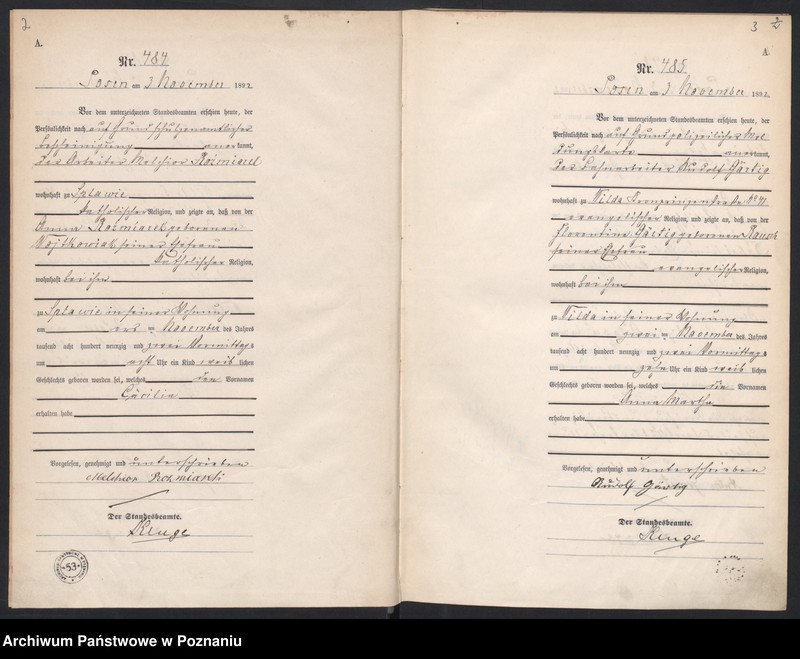 2
A.
Nr. 484
Posen am 3 November 1892.
Vor dem unterzeichneten Standesbeamten erschien heute, der
Persönlichkeit nach auf Grund schulzenamtlicher
Bescheinigung anerkannt,
der Arbeiter Melchior Rozmiarek
wohnhaft zu Splawie
katholischer Religion, und zeigte an, daß von der
Anna Rozmiarek geborenen
Wojtkowiak seiner Ehefrau
katholischer Religion,
wohnhaft bei ihm
zu Splawie in seiner Wohnung
am November des Jahres
tausend acht hundert neunzig und zwei Vormittags
um acht Uhr ein Kind weiblichen
Geschlechts geboren worden sei, welches den Vornamen
Cäcilia
erhalten habe.
Vorgelesen, genehmigt und unterschrieben
Melchior
Der Standesbeamte.
Kluge
53
3
A
Nr. 485
Posen am 3 November 1892.
Vor dem unterzeichneten Standesbeamten erschien heute, der
Persönlichkeit nach auf Grund polizeilicher Mel
dungskarte anerkannt,
der Bahnarbeiter Rudolf Gärtig
wohnhaft zu Wilda Kronprinzenstraße No
evangelischer Religion, und zeigte an, daß von der
Florentine Gärtig geborenen
seiner Ehefrau
evangelischer Religion,
wohnhaft bei ihm
zu Wilda in seiner Wohnung
am zwei ten November des Jahres
tausend acht hundert neunzig und zwei Vormittags
um zehn Uhr ein Kind weiblichen
Geschlechts geboren worden sei, welches die Vornamen
Anna Martha
erhalten habe.
Vorgelesen, genehmigt und unterschrieben
Rudolf Gärtig
Der Standesbeamte.
Kluge
Archiwum Państwowe w Poznaniu